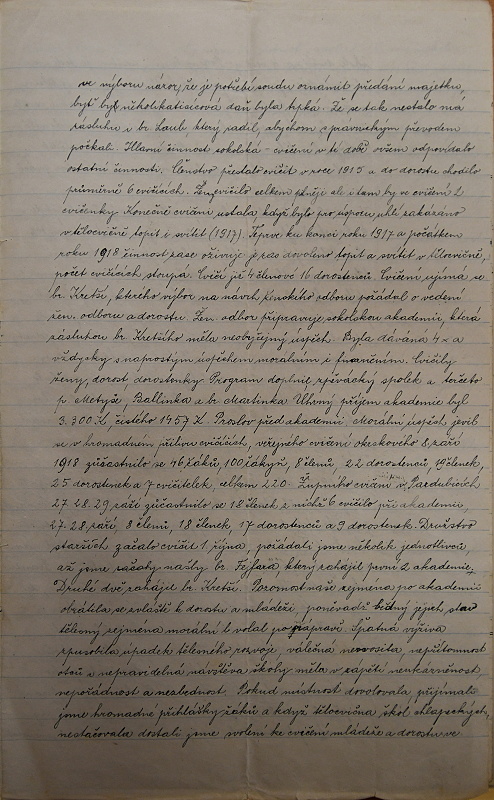 ve výboru názor, že je potřebí soudu oznámit předání majetku,
byť byl několikatisícová daň byla trpká. Že se tak nestalo má
zásluhu i br. Laub, který radil, abychom s právnickým převodem
počkali. Hlavní činnost sokolská - cvičení v té době ovšem odpovídalo
ostatní činnosti. Členstvo přestalo cvičit v roce 1915 a do dorostu chodilo
průměrně 6 cvičících. Ženy cvičilo celkem pilněji ale i tam by ve cvičení 2
cvičenky. Konečně cvičení ustala když bylo pro úsporu uhlí zakázáno
v tělocvičně topit i svítit (1917). Teprve ku konci roku 1917 a počátkem
roku 1918 činnost zase oživuje, je zas dovoleno topit a svítit v tělocvičně,
počet cvičících stoupa. Cvičí již 4 členové 16 dorostenců. Cvičení ujímá se
br. Kretší, kterého výbor na návrh ženského odboru požádal o vedení
žen. odboru a dorostu. Žen. odbor připravuje sokolskou akademii, která
zásluhou br. Kretšího měla neobyčejný úspěch. Byla dávana 4x a
vždycky s naprostým úspěchem moralním i finančním. Cvičily
ženy, dorost, dorostenky. Program doplnil zpěvácký spolek a terzeto
p. Metyše Ballinka a br. Martinka. Úhrnný příjem akademie byl
3.300 K, čistého 1457 K. Proslov před akademií. Morální úspěch jevil
se v hromadném přílivu cvičících, veřejného cvičení okrskového 8. září
1918 zúčastnilo se 46 žáků, 100 žákyň, 8 členů, 22 dorostenců, členek,
25 dorostenek a 7 cvičitelek, celkem 220. Župního cvičení v Pardubicích
27-28.29. září zúčastnilo se 18 členek z nichž 6 cvičilo při akademii,
27-28. září, 8 členů, 18 členek, 17 dorostenců a 9 dorostenek. Družstvo
starších začalo cvičit 1. října, požádali jsme několik jednotlivců,
až jsme začátky našly br. Fejfara, který zahájil první 2 akademie,
Druhé dvě zahájel br. Kretší. Pozornost naše zejména po akademii
obrátila se zvláště k dorostu a mládeži, poněvadž bídný jejich stav
tělesný zejména morální k volal po nápravě. Špatná výživa
způsobila úpadek tělesného rozvoje, válečna nepřítomnost
otců a nepravidelná návštěva školy měla v zápětí neukázněnost,
nepořádnost a nezlednost. Pokud místnost dovolovala přijímali
jsme hromadné přihlášky žáků a když tělocvična škol chlapeckých
nestačovala dostali jsme svolení ke cvičení mládeže a dorostu ve